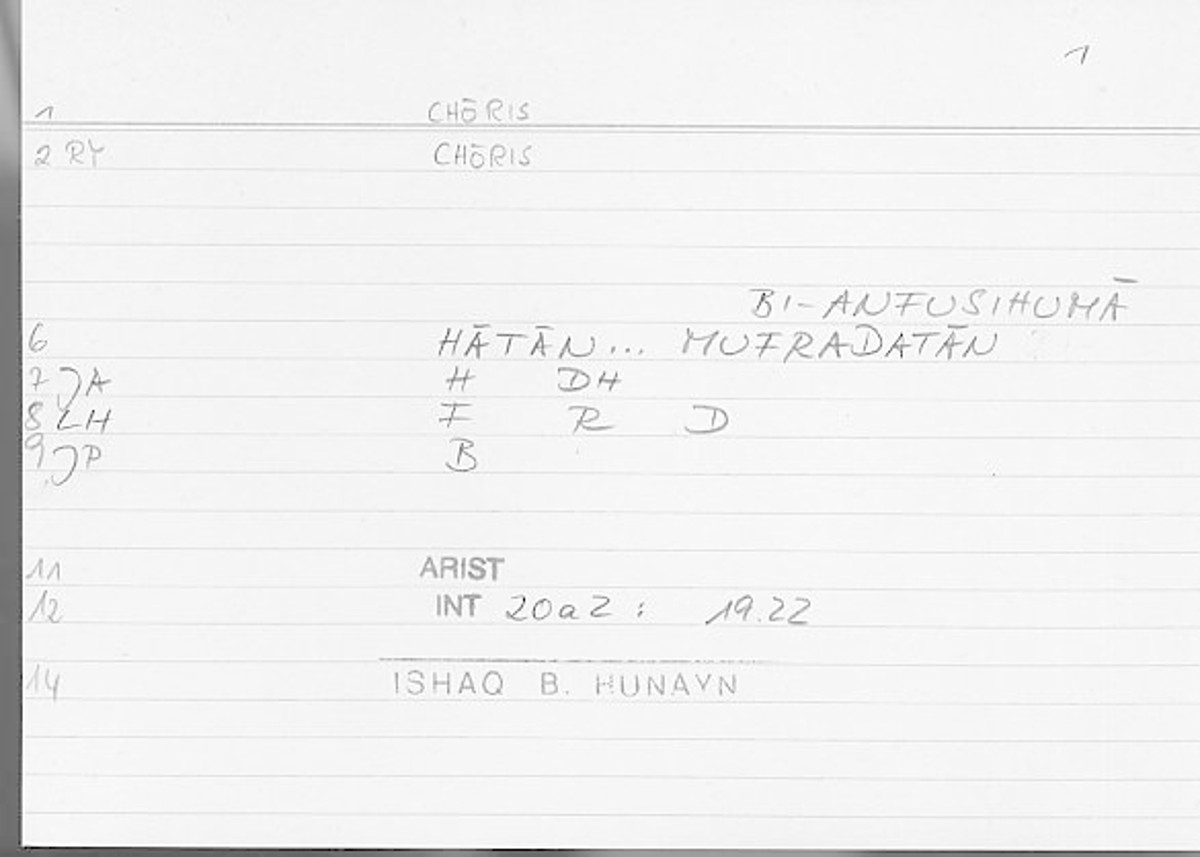 1
1 CHŌRIS
2 RY CHŌRIS
BI-ANFUSIHUMĀ
6 HĀTĀN... MUFRADATĀN
7 JA H DH
8 LH F R D
9 JP B
11 ARIST
12 INT 20a2 : 19.22
14 ISHAQ B. HUNAYN